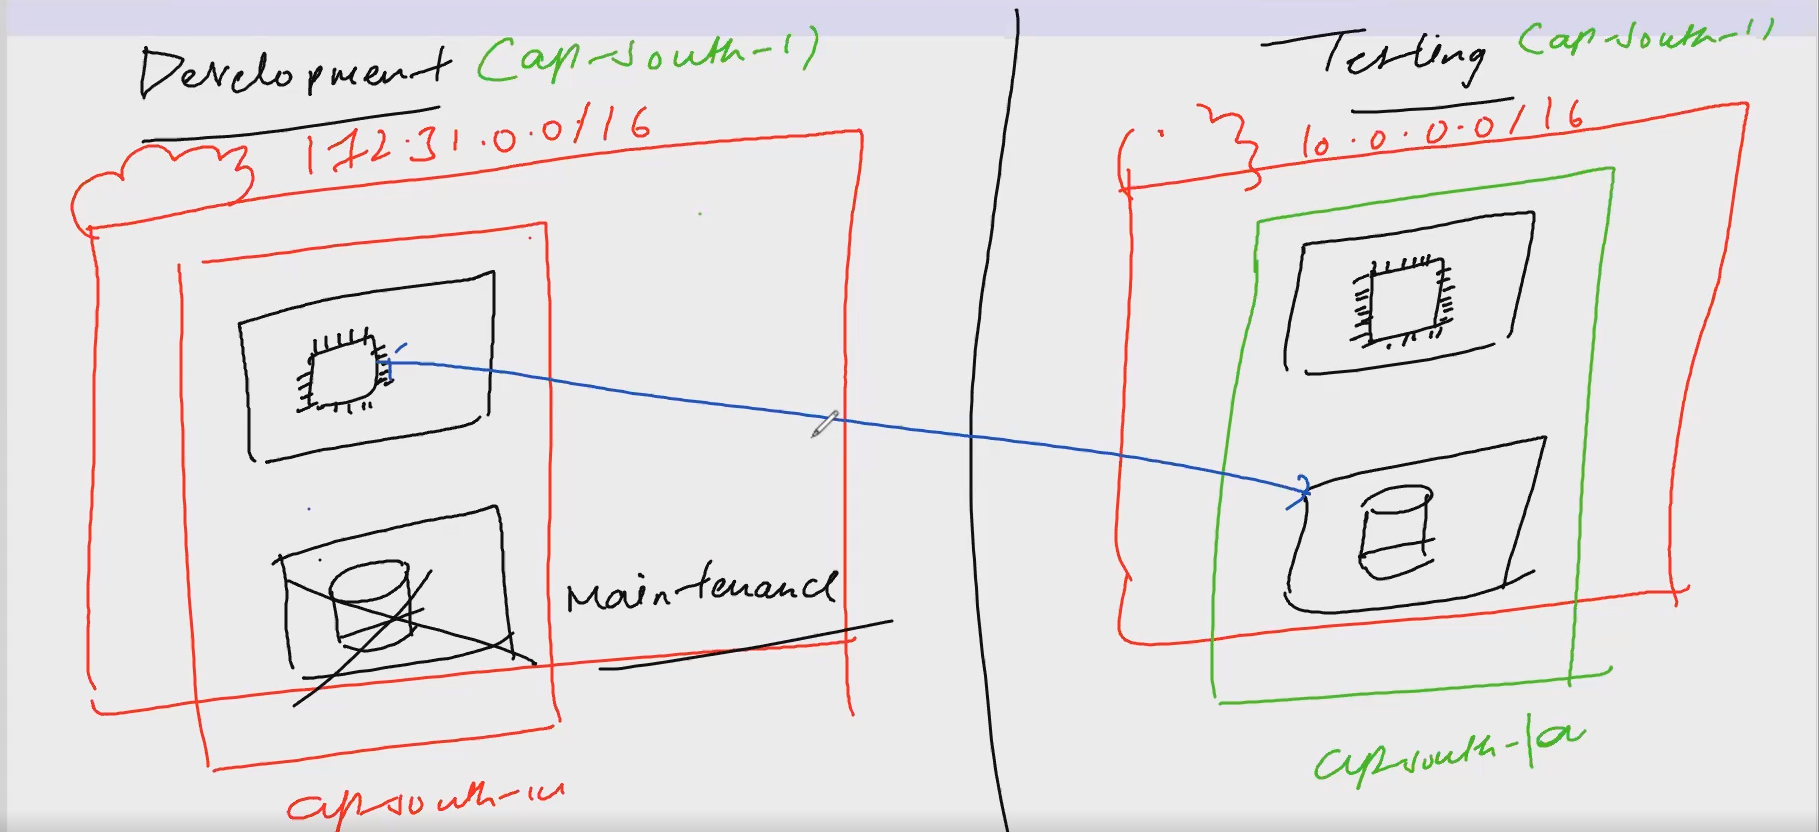 Development (ap-south-1)
172.31.0.0/16
Maintenance
ap-south-1a
Testing (ap-south-1)
10.0.0.0/16
ap-south-1a